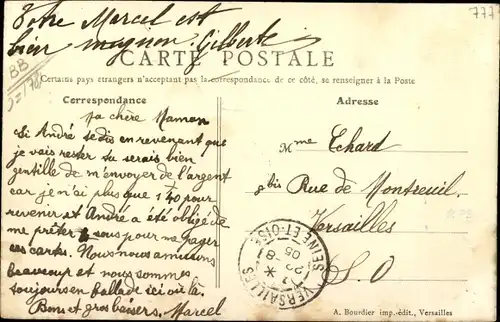 Votre Marcel est
bien mignon. Gilberte
CARTE POSTALE
Certains pays etrangers n'acceptant pas la correspondance de ce côté, se renseigner à la Poste
Correspondance
Ma chère Maman
Si André te dis en revenant que
je vais rester tu serais bien
gentille de m'envoyer de l'argent
car je n'ai plus que 1f40 pour
revenir et André a été obligé de
me prêter sous pour me payer
ces cartes. Nous nous amusons
beaucoup et nous sommes
toujours en ballade ici où là.
Bons et gros baisers. Marcel
Adresse
Mme Echard
bis Rue de Montreuil
Versailles
S. O
VERSAILLES
SEINE-ET-OISE
22 -8
05
A. Bourdier imp.-édit., Versailles
BB
777